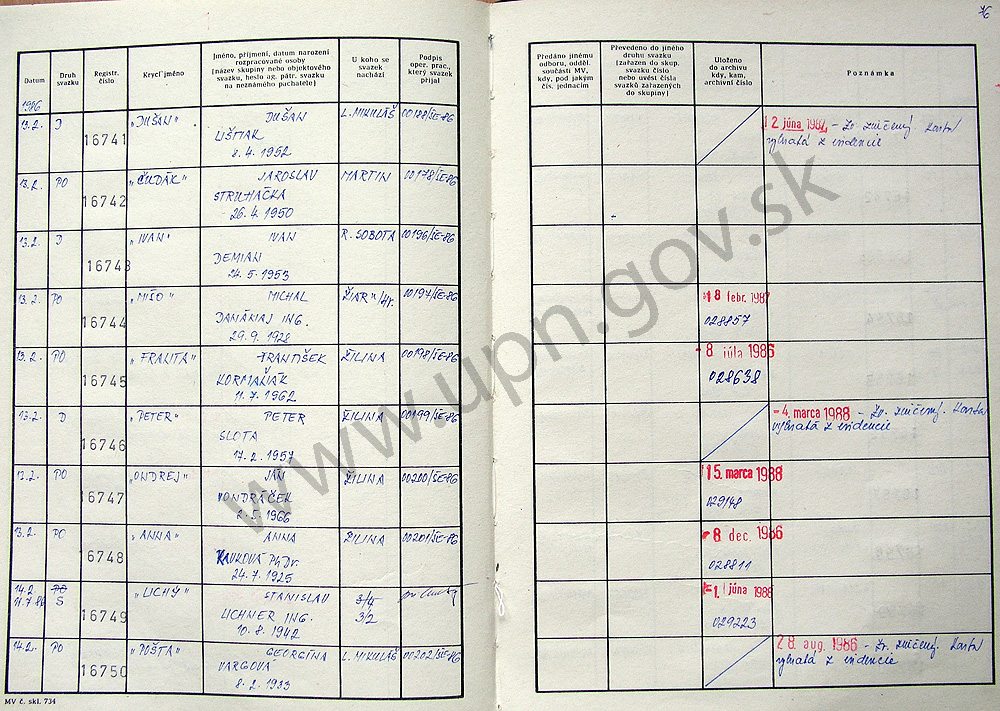 76
Datum
Druh svazku
Registr. číslo
Krycí jméno
Jméno, příjmení, datum narození
rozpracované osoby
(název skupiny nebo objektového
svazku, heslo ag. pátr. svazku
na neznámého pachatele)
U koho se
svazek
nachází
Podpis
oper. prac.,
který svazek
přijal
Předáno jinému
odboru, odděl.
součásti MV,
kdy, pod jakým
čís. jednacím
Převedeno do jiného
druhu svazku
(zařazen do skup.
svazku číslo
nebo uvést čísla
svazků zařazených
do skupiny)
Uloženo
do archivu
kdy, kam,
archivní číslo
Poznámka
1986
13.2. D 16741 „DUŠAN" DUŠAN L. MIKULÁŠ 00188/ŠE-86
LIŠTIAK
8.4. 1952
12 júna 1987 - Zv. zničený. Karta
vybratá z evidencie
13.2. PO 16742 „ČUDÁK" JAROSLAV MARTIN 00178/ŠE-86
STRUHAČKA
26.4. 1950
13.2. D 16743 „IVAN" IVAN R. SOBOTA 00196/ŠE-86
DEMIAN
24.5. 1953
13.2. PO 16744 „MIŠO" MICHAL 00197/ŠE-86
ING.
29.9. 1928
18 febr. 1987
028857
13.2. PO 16745 „FRANTA" FRANTIŠEK ŽILINA 00198/ŠE-86
KORMAŇÁK
11.7. 1962
- 8 júla 1986
028638
13.2. D 16746 „PETER" PETER ŽILINA 00199/ŠE-86
SLOTA
17.2. 1957
- 4. marca 1988 - Zv. zničený. Karta
vybratá z evidencie
13.2. PO 16747 „ONDREJ" JÁN ŽILINA 00200/ŠE-86
VONDRÁČEK
2.5. 1966
15. marca 1988
029148
13.2. PO 16748 „ANNA" ANNA ŽILINA 00201/ŠE-86
KAUKOVÁ PhDr
24.7. 1925
- 8 dec. 1986
028811
14.2 PO 16749 „LICHÝ" STANISLAV 3/4
11.7.86 S LICHNER ING. 3/2
10.8. 1942
- 1. júna 1988
029223
14.2. PO 16750 „POŠTA" GEORGÍNA L. MIKULÁŠ 00202/ŠE-86
VARGOVÁ
8.2. 1933
28. aug. 1986 - Zv. zničený. Karta
vybratá z evidencie
MV č. skl. 734
www.upn.gov.sk